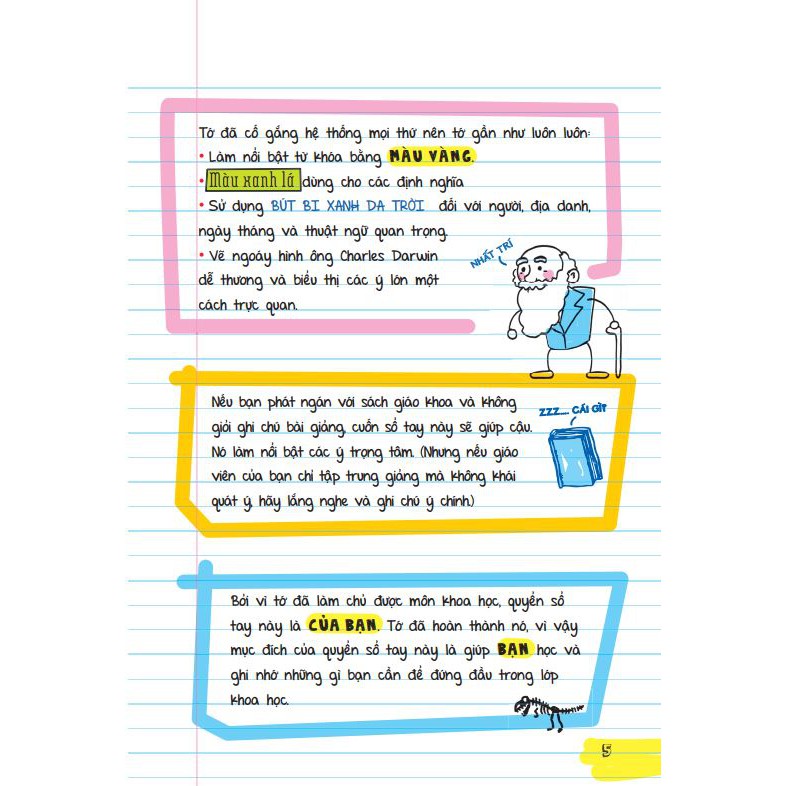 Tớ đã cố gắng hệ thống mọi thứ nên tớ gần như luôn luôn:
• Làm nổi bật từ khóa bằng MÀU VÀNG.
• Màu xanh lá dùng cho các định nghĩa
• Sử dụng BÚT BI XANH DA TRỜI đối với người, địa danh,
ngày tháng và thuật ngữ quan trọng.
• Vẽ ngoáy hình ông Charles Darwin
dễ thương và biểu thị các ý lớn một
cách trực quan.
NHẤT TRÍ
Nếu bạn phát ngán với sách giáo khoa và không
giỏi ghi chú bài giảng, cuốn sổ tay này sẽ giúp cậu.
Nó làm nổi bật các ý trọng tâm. (Nhưng nếu giáo
viên của bạn chỉ tập trung giảng mà không khái
quát ý, hãy lắng nghe và ghi chú ý chính.)
ZZZ.... CÁI GÌ?
Bởi vì tớ đã làm chủ được môn khoa học, quyển sổ
tay này là CỦA BẠN. Tớ đã hoàn thành nó, vì vậy
mục đích của quyển sổ tay này là giúp BẠN học và
ghi nhớ những gì bạn cần để đứng đầu trong lớp
khoa học.
5